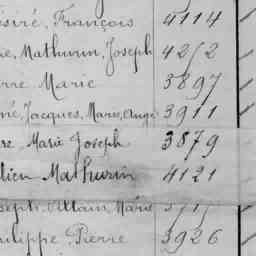 ésiré, François 4114
Mathurin, Joseph 42/2
Marie 3897
Jacques, Marie, Ange 3911
Marie Joseph 3879
lien Mathurin 4121
seph, Allain, Marie
hilippe, Pierre 3926